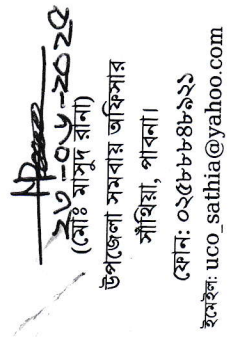 ২৩-০৬-২০২৫
(মোঃ মাসুদ রানা)
উপজেলা সমবায় অফিসার
সাঁথিয়া, পাবনা।
ফোন: ০২৫৮৮৮৪৮৯২১
ইমেইল: uco_sathia@yahoo.com